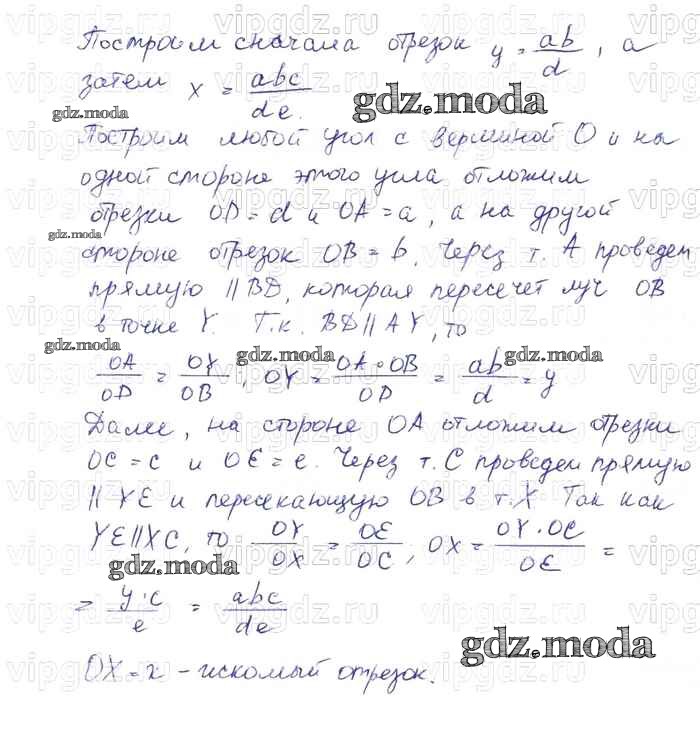 Построим сначала отрезок y = ab/d, а
затем x = abc/de.
gdz.moda
gdz.moda
Построим любой угол с вершиной O и на
одной стороне этого угла отложим
отрезки OD = d и OA = a, а на другой
gdz.moda
стороне отрезок OB = b. Через т. A проведем
прямую || BD, которая пересечет луч OB
в точке Y. Т.к. BD || AY, то
gdz.moda
gdz.moda
gdz.moda
OA/OD = OY/OB, OY = OA·OB/OD = ab/d = y
Далее, на стороне OA отложим отрезки
OC = c и OE = e. Через т. C проведем прямую
|| YE и пересекающую OB в т. X Так как
YE || XC, то OY/OX = OE/OC, OX = OY·OC/OE =
gdz.moda
= y·c/e = abc/de
gdz.moda
OX = x - искомый отрезок.
vipgdz.ru